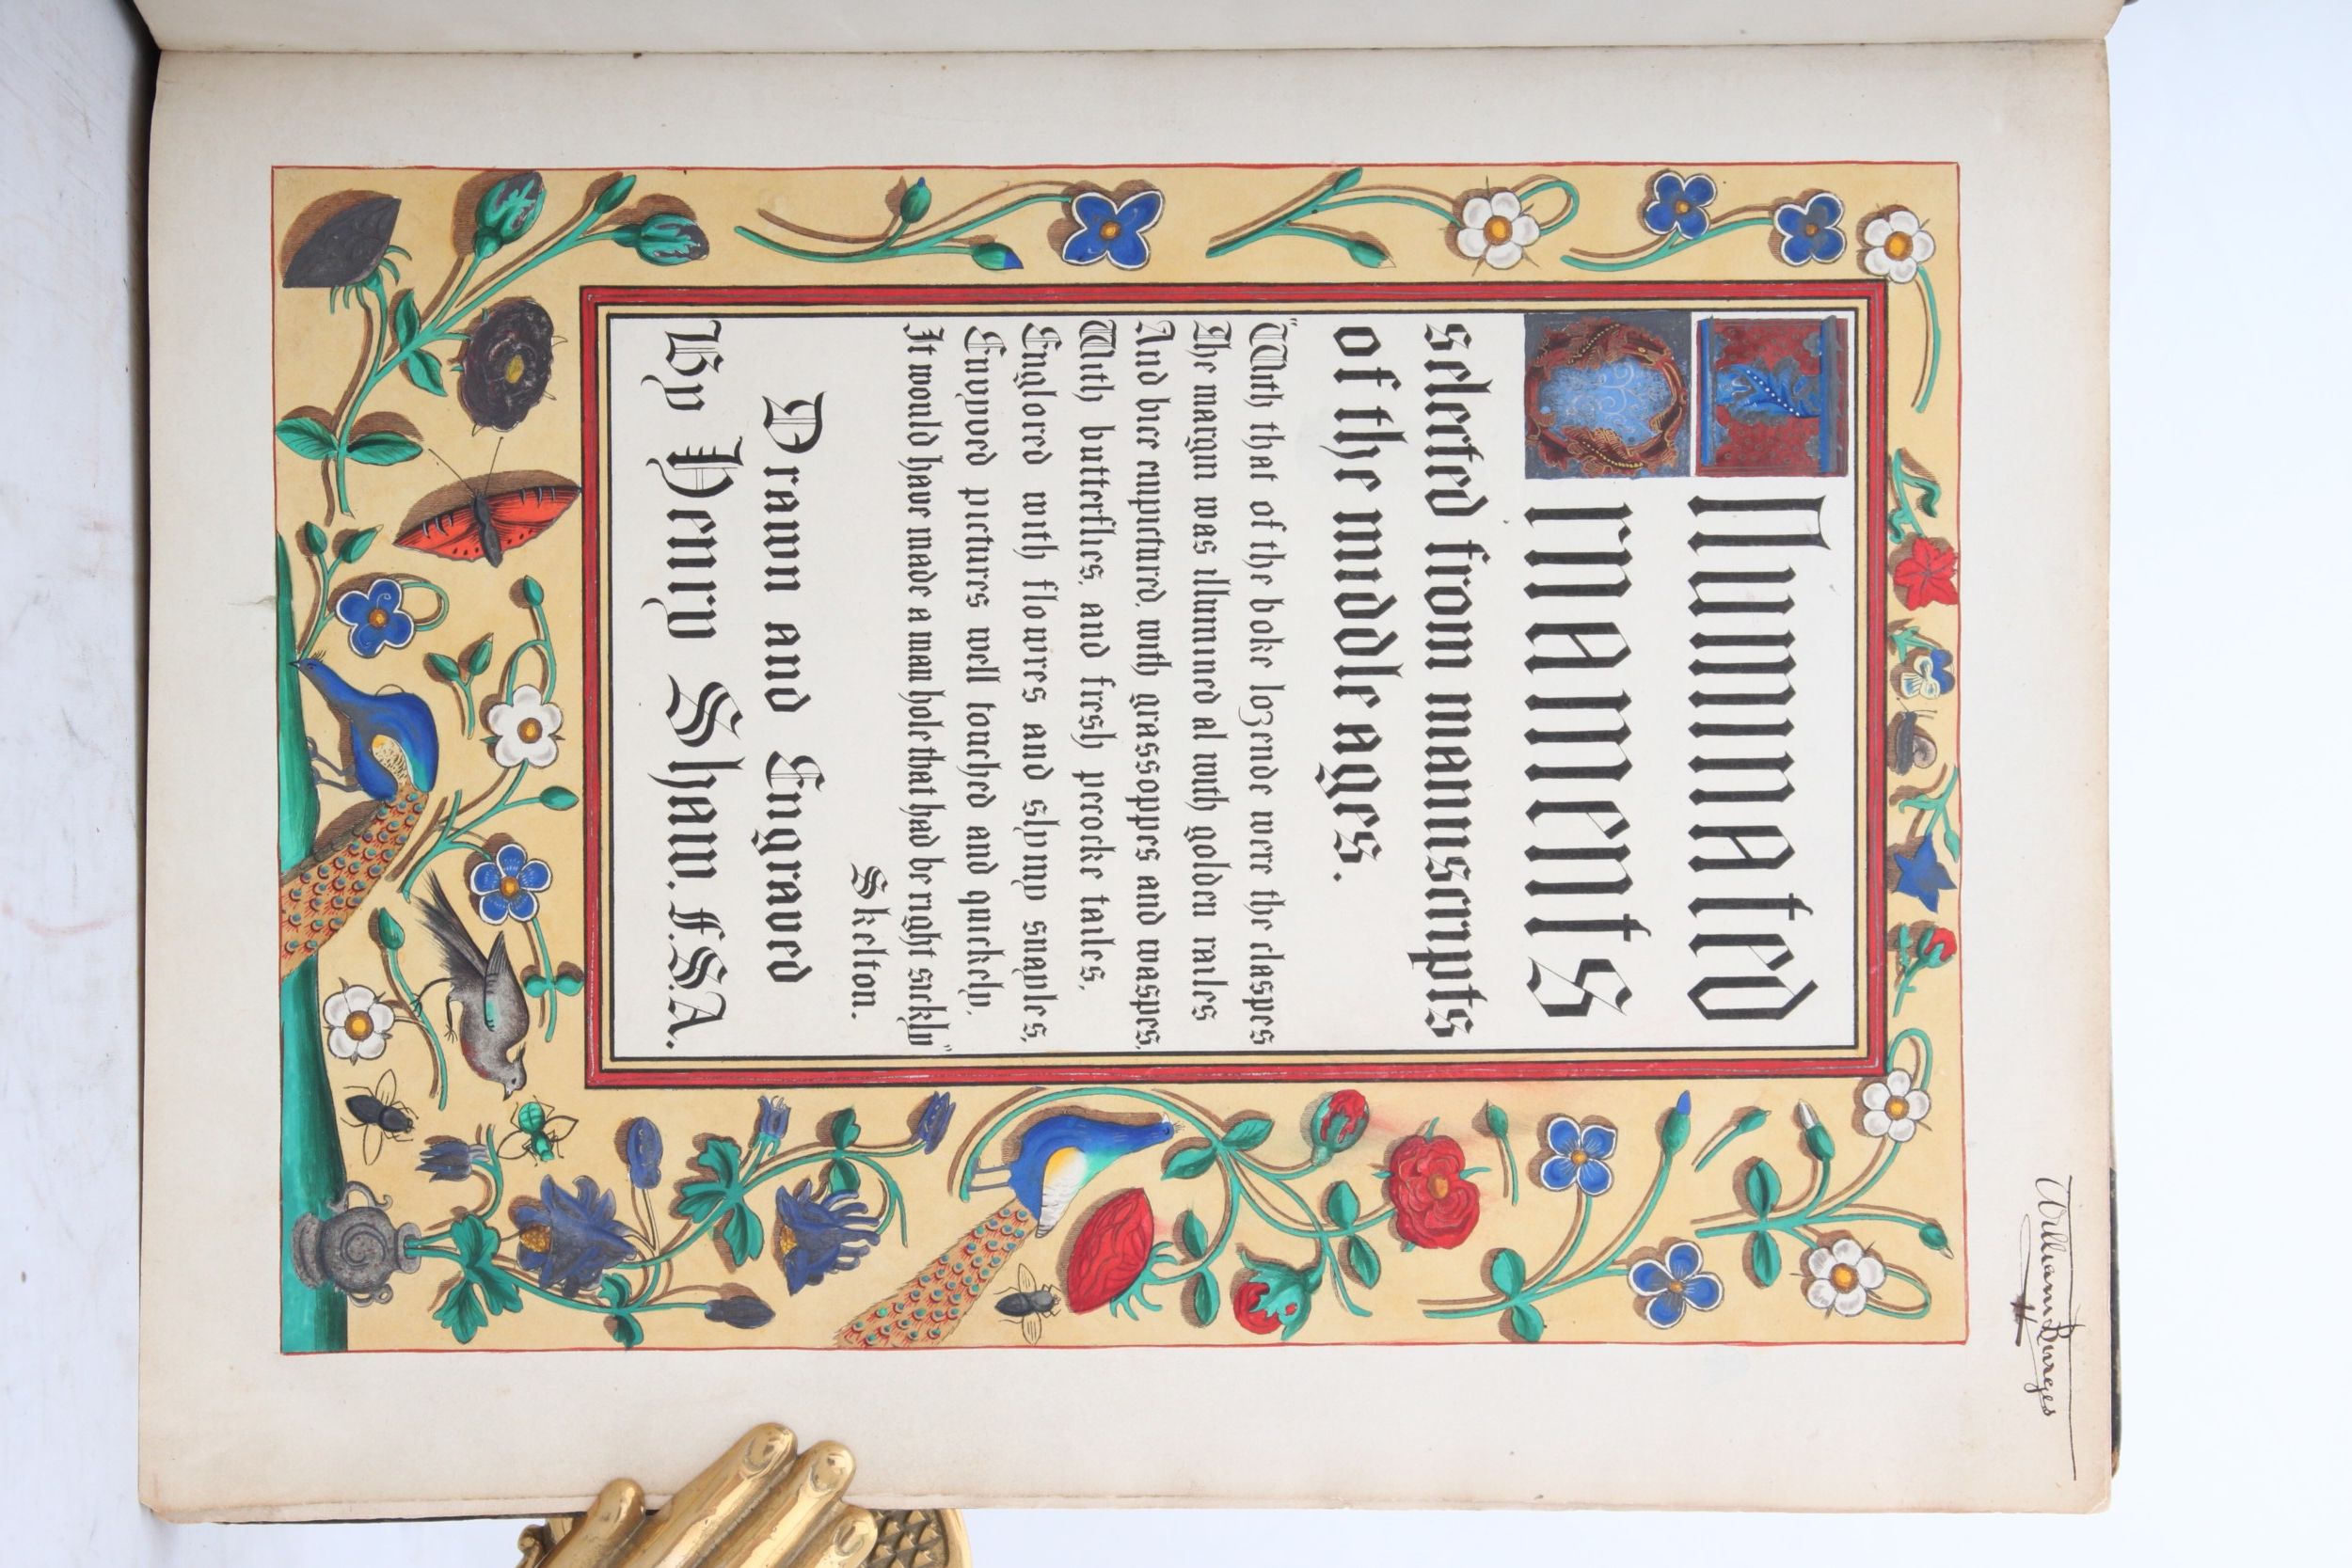 William Burges
Illuminated
Ornaments
selected from manuscripts
of the middle ages.
"With that of the boke lozende were the claspes
The margin was illumined al with golden railes
And bice empictured, with grassoppes and waspes,
With butterflies, and fresh pecocke tailes,
Englored with flowres and slymy snayles,
Envyved pictures well touched and quickely,
It would have made a man hole that had be right sickly"
Skelton.
Drawn and Engraved
By Henry Shaw. F.S.A.